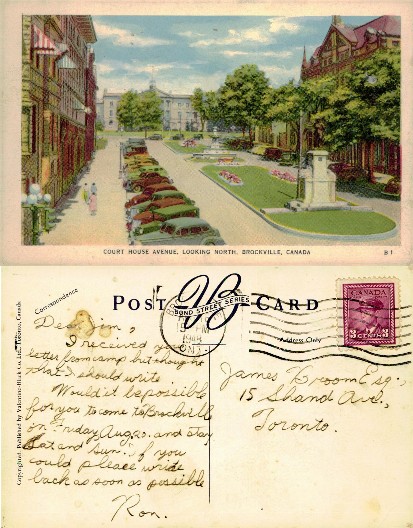 COURT HOUSE AVENUE, LOOKING NORTH, BROCKVILLE, CANADA
B 1
Correspondence
POST CARD
VB
BOND STREET SERIES
Address Only
PM
1948
ONT.
CANADA
3 CENTS 3
Copyrighted. Published by Valentine-Black Co. Ltd., Toronto, Canada
Dear Jim,
I received your
letter from camp but thought
that I should write
Would it be possible
for you to come to Brockville
on Friday Aug 20. and stay
Sat. and Sun. if you
could please write
back as soon as possible
Ron.
James Croom Esq.,
15 Shand Ave.,
Toronto.